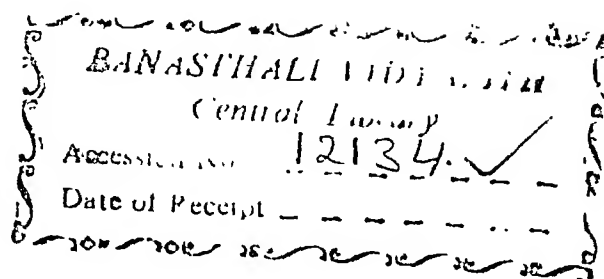 BANASTHALI VIDYAPITH
Central Library
Accession No. 12134
Date of Receipt